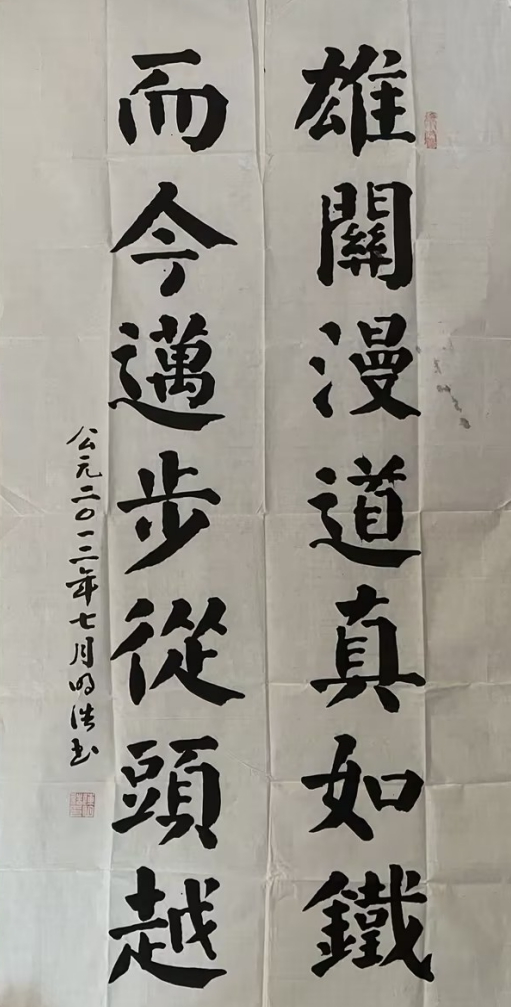 雄關漫道真如鐵
而今邁步從頭越
公元二〇一二年七月明浩书